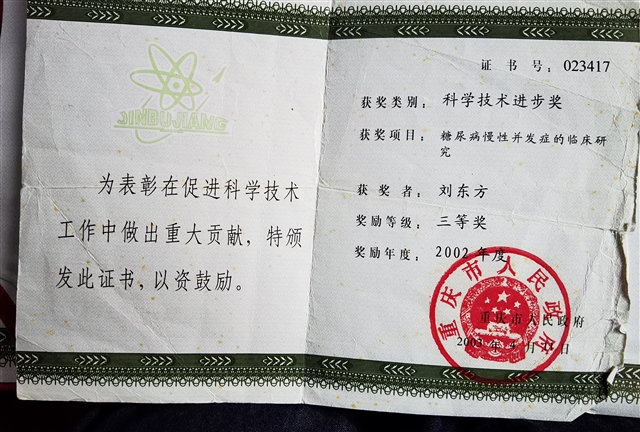 JINBUJIANG
为表彰在促进科学技术
工作中做出重大贡献，特颁
发此证书，以资鼓励。
证书号：023417
获奖类别：科学技术进步奖
获奖项目：糖尿病慢性并发症的临床研
究
获奖者：刘东方
奖励等级：三等奖
奖励年度：2002年度
重庆市人民政府
重庆市人民政府
2003年4月 日